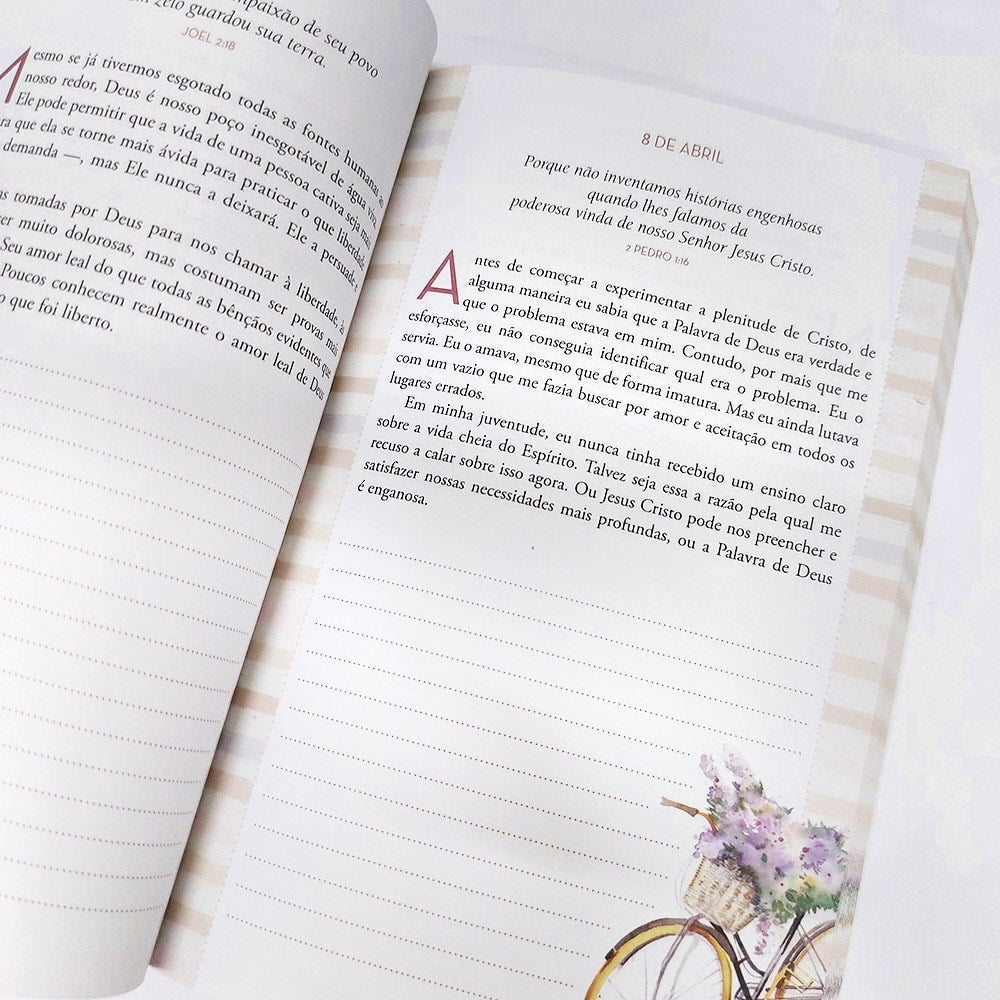 mpaixão de seu povo
zelo guardou sua terra.
JOEL 2:18
Mesmo se já tivermos esgotado todas as fontes humanas ao
nosso redor, Deus é nosso poço inesgotável de água viva.
Ele pode permitir que a vida de uma pessoa cativa seja mais
ra que ela se torne mais ávida para praticar o que liberdade
demanda —, mas Ele nunca a deixará. Ele a persuade e
as tomadas por Deus para nos chamar à liberdade, às
er muito dolorosas, mas costumam ser provas mais
Seu amor leal do que todas as bênçãos evidentes que
Poucos conhecem realmente o amor leal de Deus
o que foi liberto.
8 DE ABRIL
Porque não inventamos histórias engenhosas
quando lhes falamos da
poderosa vinda de nosso Senhor Jesus Cristo.
2 PEDRO 1:16
Antes de começar a experimentar a plenitude de Cristo, de
alguma maneira eu sabia que a Palavra de Deus era verdade e
que o problema estava em mim. Contudo, por mais que me
esforçasse, eu não conseguia identificar qual era o problema. Eu o
servia. Eu o amava, mesmo que de forma imatura. Mas eu ainda lutava
com um vazio que me fazia buscar por amor e aceitação em todos os
lugares errados.
Em minha juventude, eu nunca tinha recebido um ensino claro
sobre a vida cheia do Espírito. Talvez seja essa a razão pela qual me
recuso a calar sobre isso agora. Ou Jesus Cristo pode nos preencher e
satisfazer nossas necessidades mais profundas, ou a Palavra de Deus
é enganosa.